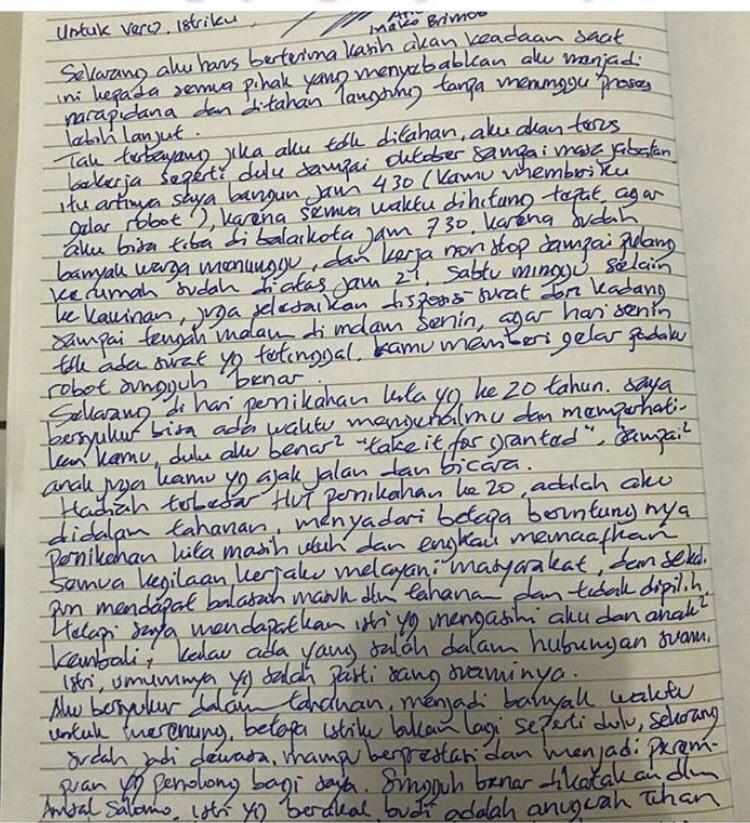 Untuk Vero, istriku,
Mako Brimob
Sekarang aku harus berterima kasih akan keadaan saat
ini kepada semua pihak yang menyebabkan aku menjadi
narapidana dan ditahan langsung tanpa menunggu proses
lebih lanjut.
Tak terbayang jika aku tdk ditahan, aku akan terus
bekerja seperti dulu sampai oktober sampai masa jabatan
itu artinya saya bangun jam 430 (kamu memberiku
gelar robot), karena semua waktu dihitung tepat agar
aku bisa tiba di balaikota jam 730, karena sudah
banyak warga menunggu, dan kerja non stop sampai pulang
ke rumah sudah diatas jam 21, Sabtu minggu selain
ke kawinan, juga selesaikan disposisi surat dan kadang
sampai tengah malam di malam Senin, agar hari senin
tdk ada surat yg tertinggal. Kamu memberi gelar padaku
robot sungguh benar.
Sekarang di hari pernikahan kita yg ke 20 tahun. saya
bersyukur bisa ada waktu mengenalmu dan memperhati-
kan kamu, dulu aku benar² "take it for granted", sampai²
anak juga kamu yg ajak jalan dan bicara.
Hadiah terbesar HUT pernikahan ke 20, adalah aku
didalam tahanan, menyadari betapa beruntung nya
Pernikahan kita masih utuh dan engkau memaafkan
Semua kegilaan kerjaku melayani masyarakat, dan
pun mendapat balasan masuk dlm tahanan dan tidak dipilih.
tetapi saya mendapatkan istri yg mengasihi aku dan anak²
kembali, kalau ada yang salah dalam hubungan suami
istri, umumnya yg salah pasti sang suaminya.
Aku bersyukur dalam tahanan, menjadi banyak waktu
untuk merenung, betapa istriku bukan lagi seperti dulu, sekarang
sudah jadi dewasa, mampu berprestasi dan menjadi perem-
puan yg penolong bagi saya. Sungguh benar dikatakan dlm
Amsal Salomo, istri yg berakal budi adalah anugerah Tuhan